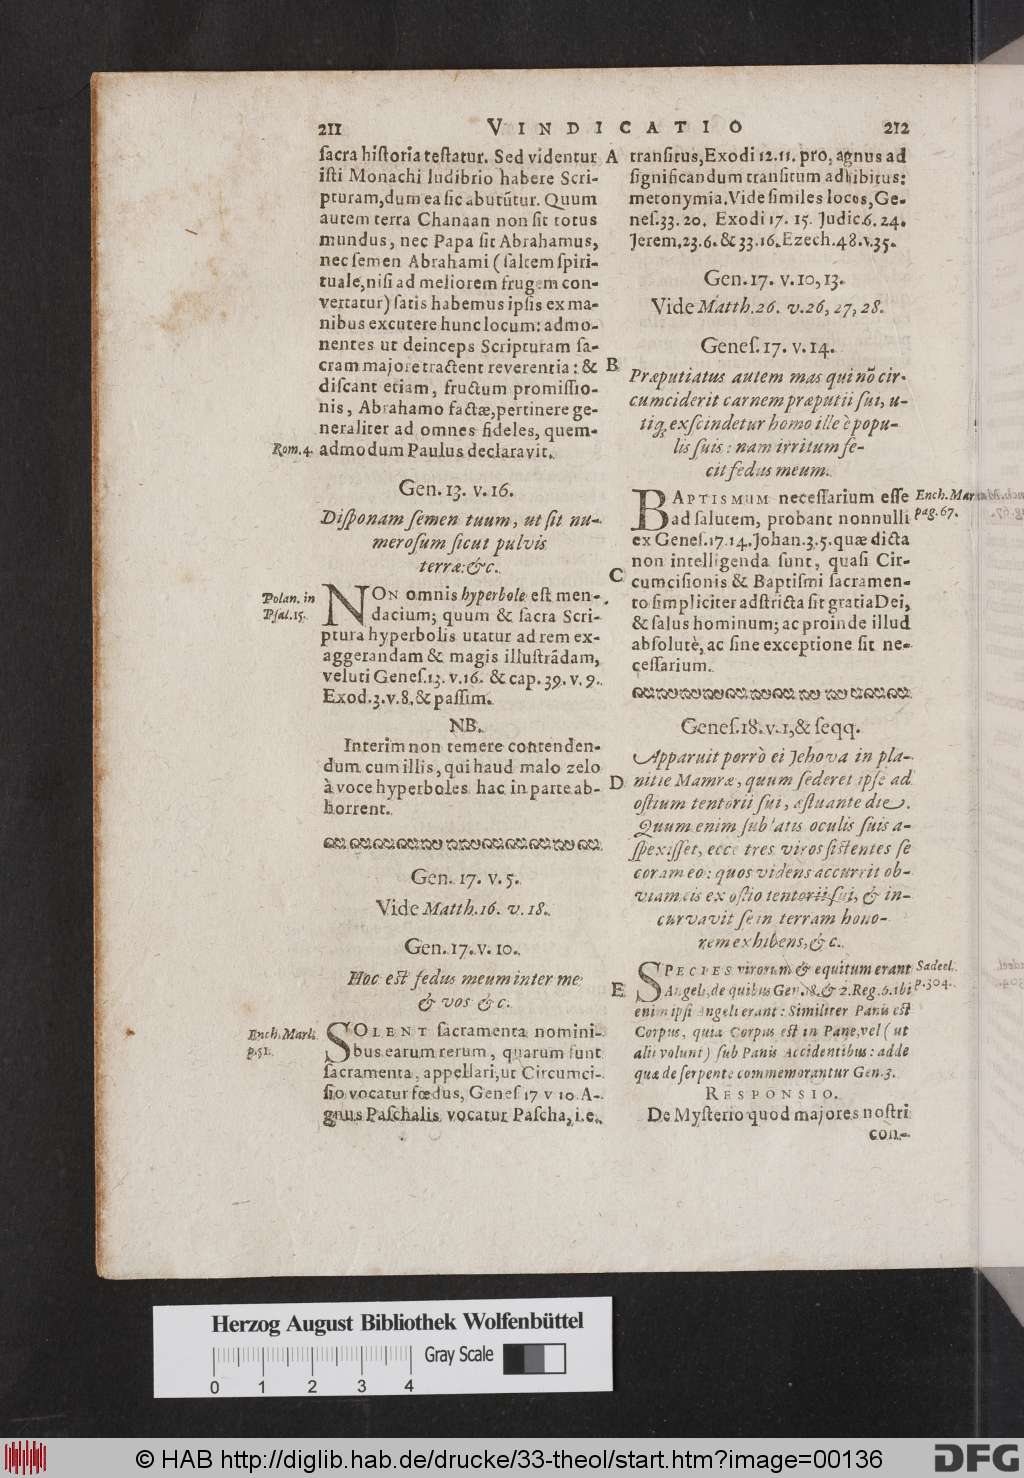 211
VINDICATIO
212
ſacra hiſtoria teſtatur. Sed videntur
iſti Monachi ludibrio habere Scri-
pturam, dum ea ſic abutūtur. Quum
autem terra Chanaan non ſit totus
mundus, nec Papa ſit Abrahamus,
nec ſemen Abrahami (ſaltem ſpiri-
tuale, niſi ad meliorem frugem con-
vertatur) ſatis habemus ipſis ex ma-
nibus excutere hunc locum: admo-
nentes ut deinceps Scripturam ſa-
cram majore tractent reverentia: &
diſcant etiam, fructum promiſſio-
nis, Abrahamo factæ, pertinere ge-
neraliter ad omnes fideles, quem-
Rom. 4. admodum Paulus declaravit.
Gen. 13. v. 16.
Diſponam ſemen tuum, ut ſit nu-
meroſum ſicut pulvis
terræ: &c.
Polan. in
Pſal. 15.
NON omnis hyperbole eſt men-
dacium; quum & ſacra Scri-
ptura hyperbolis utatur ad rem ex-
aggerandam & magis illuſtrādam,
veluti Geneſ. 13. v. 16. & cap. 39. v. 9.
Exod. 3. v. 8. & paſſim.
NB.
Interim non temere contenden-
dum cum illis, qui haud malo zelo
à voce hyperboles hac in parte ab-
horrent.
Gen. 17. v. 5.
Vide Matth. 16. v. 18.
Gen. 17. v. 10.
Hoc eſt fedus meum inter me
& vos &c.
Ench. Marl.
p. 51.
SOLENT ſacramenta nomini-
bus earum rerum, quarum ſunt
ſacramenta, appellari; ut Circumci-
ſio vocatur fœdus, Geneſ 17 v 10. A-
gnus Paſchalis vocatur Paſcha, i.e.
A
B
C
D
E
tranſitus, Exodi 12. 11. pro, agnus ad
ſignificandum tranſitum adhibitus:
metonymia. Vide ſimiles locos, Ge-
neſ. 33. 20. Exodi 17. 15. Judic. 6. 24.
Jerem. 23. 6. & 33. 16. Ezech. 48. v. 35.
Gen. 17. v. 10, 13.
Vide Matth. 26. v. 26, 27, 28.
Geneſ. 17. v. 14.
Præputiatus autem mas qui nō cir-
cumciderit carnem præputii ſui, u-
tiq; exſcindetur homo ille è popu-
lis ſuis: nam irritum fe-
cit fedus meum.
BAPTISMUM neceſſarium eſſe
ad ſalutem, probant nonnulli
ex Geneſ. 17. 14. Johan. 3. 5. quæ dicta
non intelligenda ſunt, quaſi Cir-
cumciſionis & Baptiſmi ſacramen-
to ſimpliciter adſtricta ſit gratia Dei,
& ſalus hominum; ac proinde illud
abſolutè, ac ſine exceptione ſit ne-
ceſſarium.
Ench. Mar
pag. 67.
Geneſ. 18. v. 1, & ſeqq.
Apparuit porrò ei Jehova in pla-
nitie Mamræ, quum ſederet ipſe ad
oſtium tentorii ſui, æſtuante die.
Quum enim ſublatis oculis ſuis a-
ſpexiſſet, ecce tres viros ſiſtentes ſe
coram eo: quos videns accurrit ob-
viam eis ex oſtio tentorii ſui, & in-
curvavit ſe in terram hono-
rem exhibens, & c.
SPECIES virorum & equitum erant
Angeli, de quibus Gen. 18. & 2. Reg. 6. ibi
enim ipſi Angeli erant: Similiter Panis eſt
Corpus, quia Corpus eſt in Pane, vel (ut
alii volunt) ſub Panis Accidentibus: adde
quæ de ſerpente commemorantur Gen. 3.
Sadeel.
p. 304.
RESPONSIO.
De Myſterio quod majores noſtri
con-
Herzog August Bibliothek Wolfenbüttel
Gray Scale
0 1 2 3 4
© HAB http://diglib.hab.de/drucke/33-theol/start.htm?image=00136
DFG